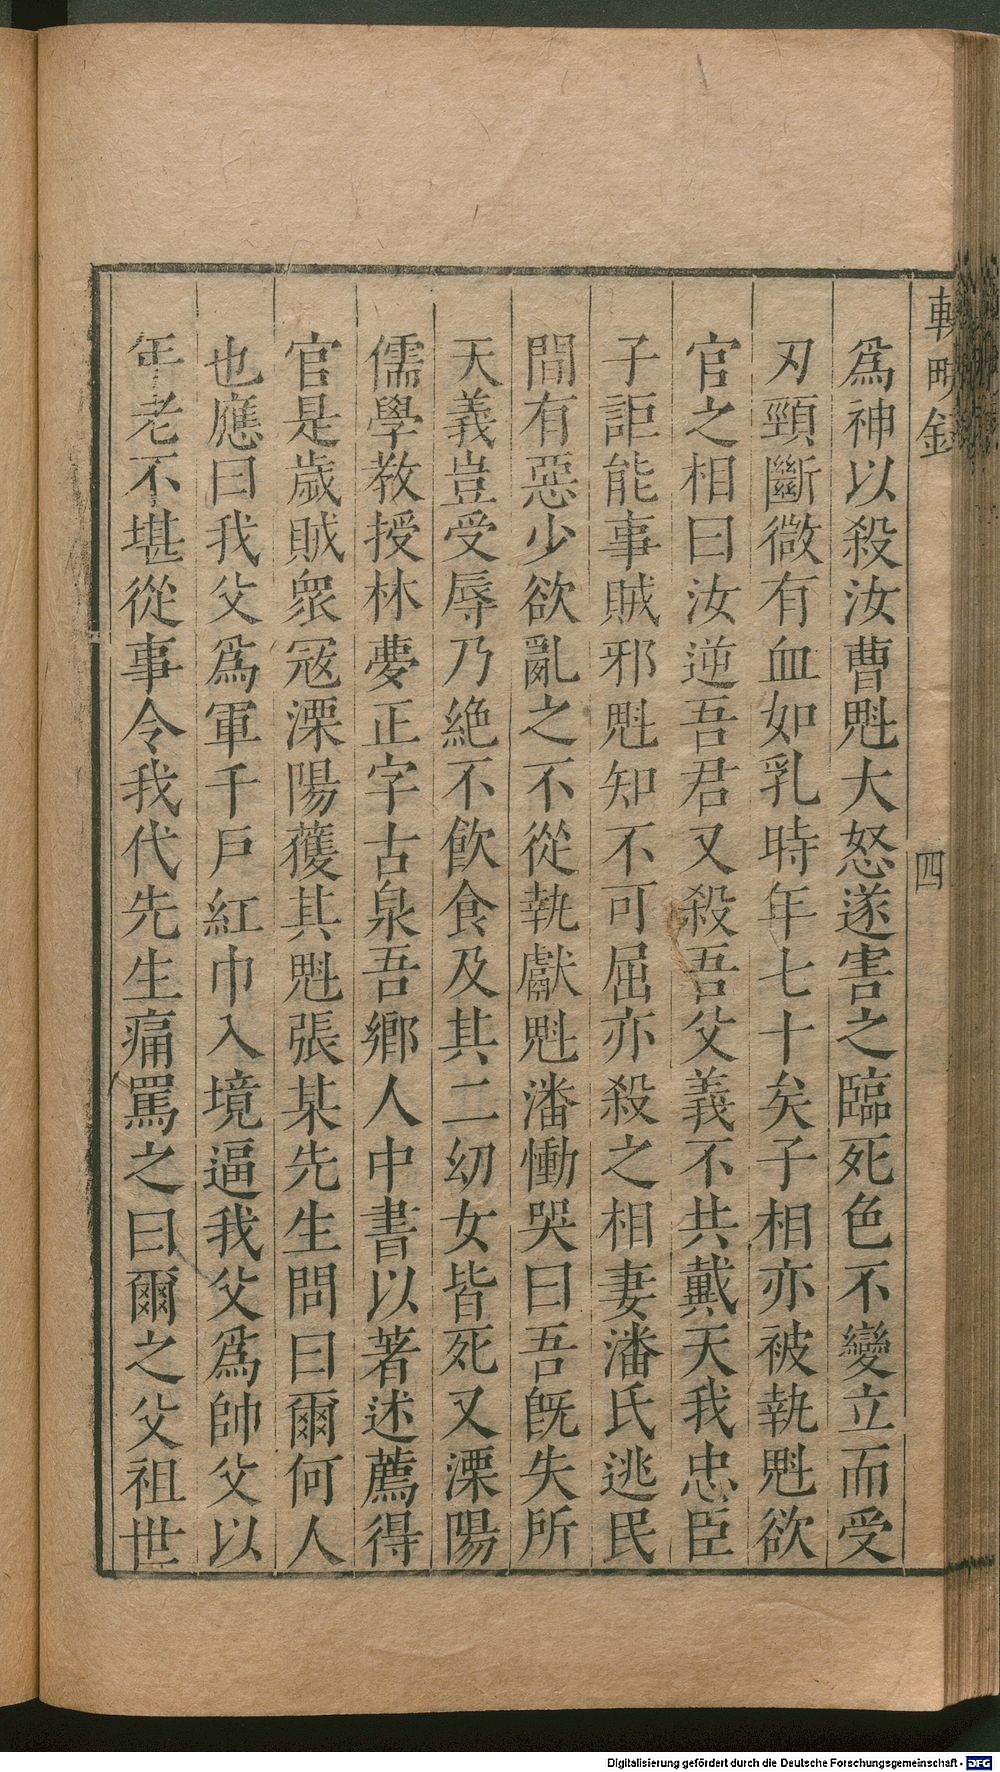 輟畊錄
四
爲神以殺汝曹魁大怒遂害之臨死色不變立而受
刃頸斷微有血如乳時年七十矣子相亦被執魁欲
官之相曰汝逆吾君又殺吾父義不共戴天我忠臣
子詎能事賊邪魁知不可屈亦殺之相妻潘氏逃民
間有惡少欲亂之不從執獻魁潘慟哭曰吾旣失所
天義豈受辱乃絶不飮食及其二幼女皆死又溧陽
儒學敎授林夢正字古泉吾鄕人中書以著述薦得
官是歲賊衆寇溧陽獲其魁張某先生問曰爾何人
也應曰我父爲軍千戶紅巾入境逼我父爲帥父以
年老不堪從事令我代先生痛罵之曰爾之父祖世
Digitalisierung gefördert durch die Deutsche Forschungsgemeinschaft - DFG